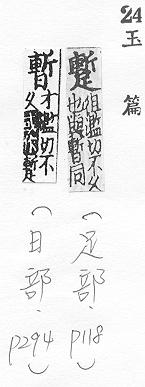 24 玉篇
蹔 徂濫切不久
也與暫同
(足部, p118)
暫 才濫切不
久 蹔
(日部, p294)